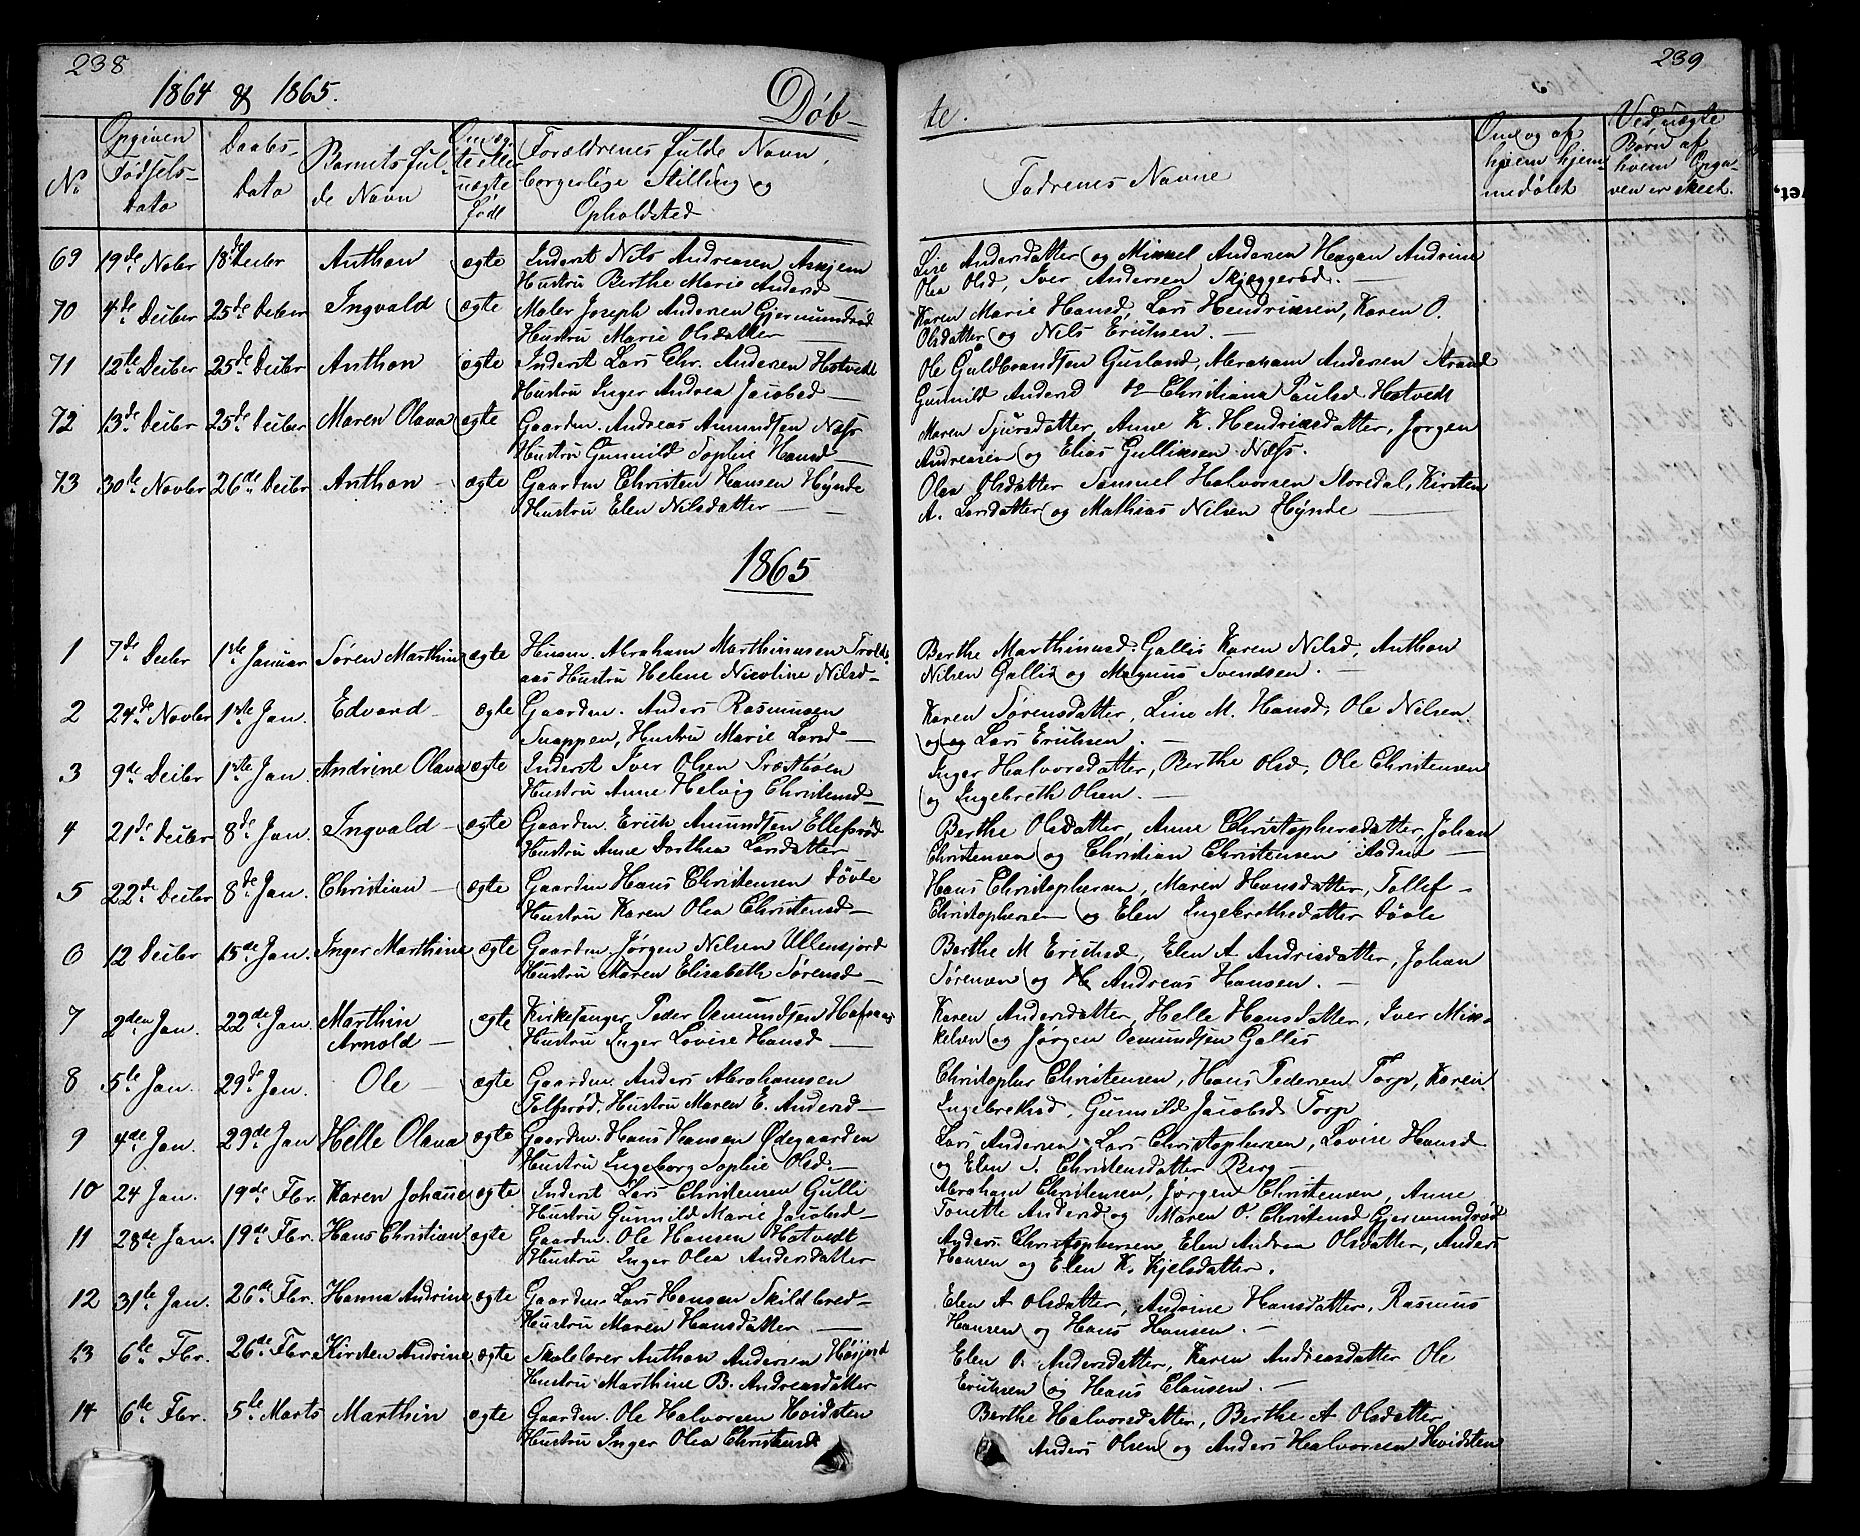 238
1864 & 1865.
Døb-
te.
239
No
Opgiven Fødsels-dato
Daabs-dato
Barnets ful-de Navn
Om ægte eller uægte født
Forældrenes fulde Navn, borgerlige Stilling og Opholdsted
Fadrenes Navne
Om og af hvem hjem-medøbt
Ved uægte Børn af hvem Opga-ven er skeet.
69 19de Novbr 18de Decbr Anthon ægte Inderst Nils Andreasen Askjem
Hustru Berthe Marie Andersd —
Lise Andersdatter og Mikkel Andersen Haugan Andrine
Olea Olsd, Iver Andersen Skjeggerød. —
70 4de Decbr 25de Decbr Ingvald ægte Maler Joseph Andersen Gjermundrød
Hustru Marie Olsdatter —
Karen Marie Hansd, Lars Hendriksen, Karen O.
Olsdatter og Nils Erichsen. —
71 12te Decbr 25de Decbr Anthon ægte Inderst Lars Chr. Andersen Hotvedt
Hustru Inger Andrea Jacobsd —
Ole Guldbrandsen Gusland, Abraham Andersen Strand
Gunnild Andersd og Christiana Paulsd Hotvedt
72 13de Decbr 25de Decbr Maren Olava ægte Gaardm. Andreas Amundsen Næss
Hustru Gunnild Sophie Hansd —
Maren Sjursdatter, Anne K. Hendriksdatter, Jørgen
Andreasen og Elias Gulliksen Næss.
73 30te Novbr 26de Decbr Anthon — ægte Gaardm Christen Hansen Hynde
Hustru Elen Nilsdatter —
Olea Olsdatter Samuel Halvorsen Stordal, Kirsten
A. Larsdatter og Mathias Nilsen Hynde —
1865
1 7de Decbr 1ste Januar Søren Marthin ægte Husm. Abraham Marthinusen Trold-
aas Hustru Helene Nicoline Nilsd —
Berthe Marthinusd Gallis Karen Nilsd, Anthon
Nilsen Gallis og Magnus Svendsen. —
2 24de Novbr 1ste Jan. Edvard — ægte Gaardm. Anders Rasmussen
Snappen, Hustru Marie Larsd —
Karen Sørensdatter, Line M. Hansd, Ole Nilsen
og og Lars Erichsen. —
3 9de Decbr 1ste Jan Andrine Olava ægte Inderst Iver Olsen Træstøen
Hustru Anne Helvig Christensd —
Inger Halvorsdatter, Berthe Olsd, Ole Christensen
og Ingebreth Olsen. —
4 21de Decbr 8de Jan. Ingvald — ægte Gaardm. Erich Amundsen Ellefsrød
Hustru Anne Dorthea Larsdatter
Berthe Olsdatter, Anne Christophersdatter, Johan
Christensen og Christian Christensen —
5 22de Decbr 8de Jan. Christian — ægte Gaardm Hans Christensen Døvle
Hustru Karen Olea Christensd —
Hans Christophersen, Maren Hansdatter, Tollef —
Christophersen og Elen Ingebrethsdatter Døvle
6 12 Decbr 15de Jan. Inger Marthine ægte Gaardm Jørgen Nilsen Ullensjord
Hustru Maren Elisabeth Sørensd —
Berthe M Erichsd, Elen A Andrisdatter, Johan
Sørensen og H Andreas Hansen. —
7 2den Jan. 22de Jan. Marthin ægte Kirkesanger Peder Osmundsen Hafsaas
Arnold — Hustru Inger Lovise Hansd —
Karen Andersdatter, Helle Hansdatter, Iver Mik-
kelsen og Jørgen Osmundsen Gallis
8 5te Jan. 29de Jan. Ole — ægte Gaardm. Anders Abrahamsen
Tolfsrød, Hustru Maren E. Andersd —
Christopher Christensen, Hans Pedersen Torp, Karen
Ingebrethsd, Gunnild Jacobsd Torp
9 4de Jan. 29de Jan Helle Olava ægte Gaardm. Hans Hansen Ødegaarden
Hustru Ingeborg Sophie Olsd. —
Lars Andersen Lars Christophersen, Lovise Hansd
og Elen S. Christensdatter Berg —
10 24 Jan. 19de Fbr. Karen Johane ægte Inderst Lars Christensen Gulli
Hustru Gunnild Marie Jacobsd —
Abraham Christensen, Jørgen Christensen, Anne
Tonette Andersd og Maren O. Christensd Gjermundrød
11 28de Jan. 19de Fbr. Hans Christian ægte Gaardm. Ole Hansen Hotvedt
Hustru Inger Olea Andersdatter
Anders Christophersen, Elen Andrea Olsdatter, Anders
Hansen og Elen K. Kjelsdatter.
12 31te Jan. 26de Fbr. Hanna Andrine ægte Gaardm Lars Hansen Skildbred —
Hustru Maren Hansdatter —
Elen A Olsdatter, Andrine Hansdatter, Rasmus
Hansen og Hans Hansen. —
13 6te Fbr. 26de Fbr. Kirsten Andrine ægte Skolelærer Anthon Andersen Høijord
Hustru Marthine B. Andreasdatter
Elen O. Andersdatter, Karen Andreasdatter Ole
Erichsen og Hans Clausen. —
14 6te Fbr. 5te Marts Marthin ægte Gaardm. Ole Halvorsen Hvidsten
Hustru Inger Olea Christensd
Berthe Halvorsdatter, Berthe A Olsdatter
Anders Olsen og Anders Halvorsen Hvidsten
vet,